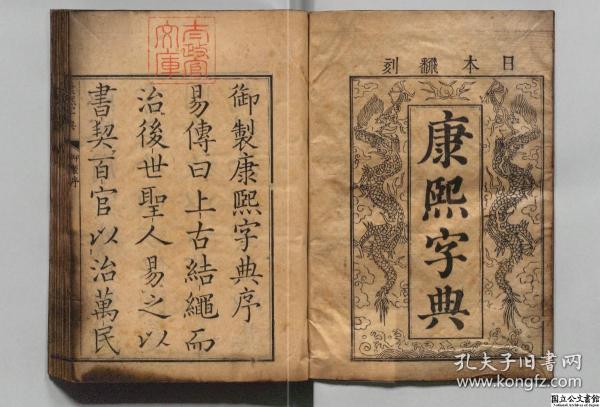 日本飜刻
康熙字典
御製康熙字典序
易傳曰上古結繩而
治後世聖人易之以
書契百官以治萬民
太政官
文庫
孔夫子旧书网
www.kongfz.com
国立公文書館
National Archives of Japan